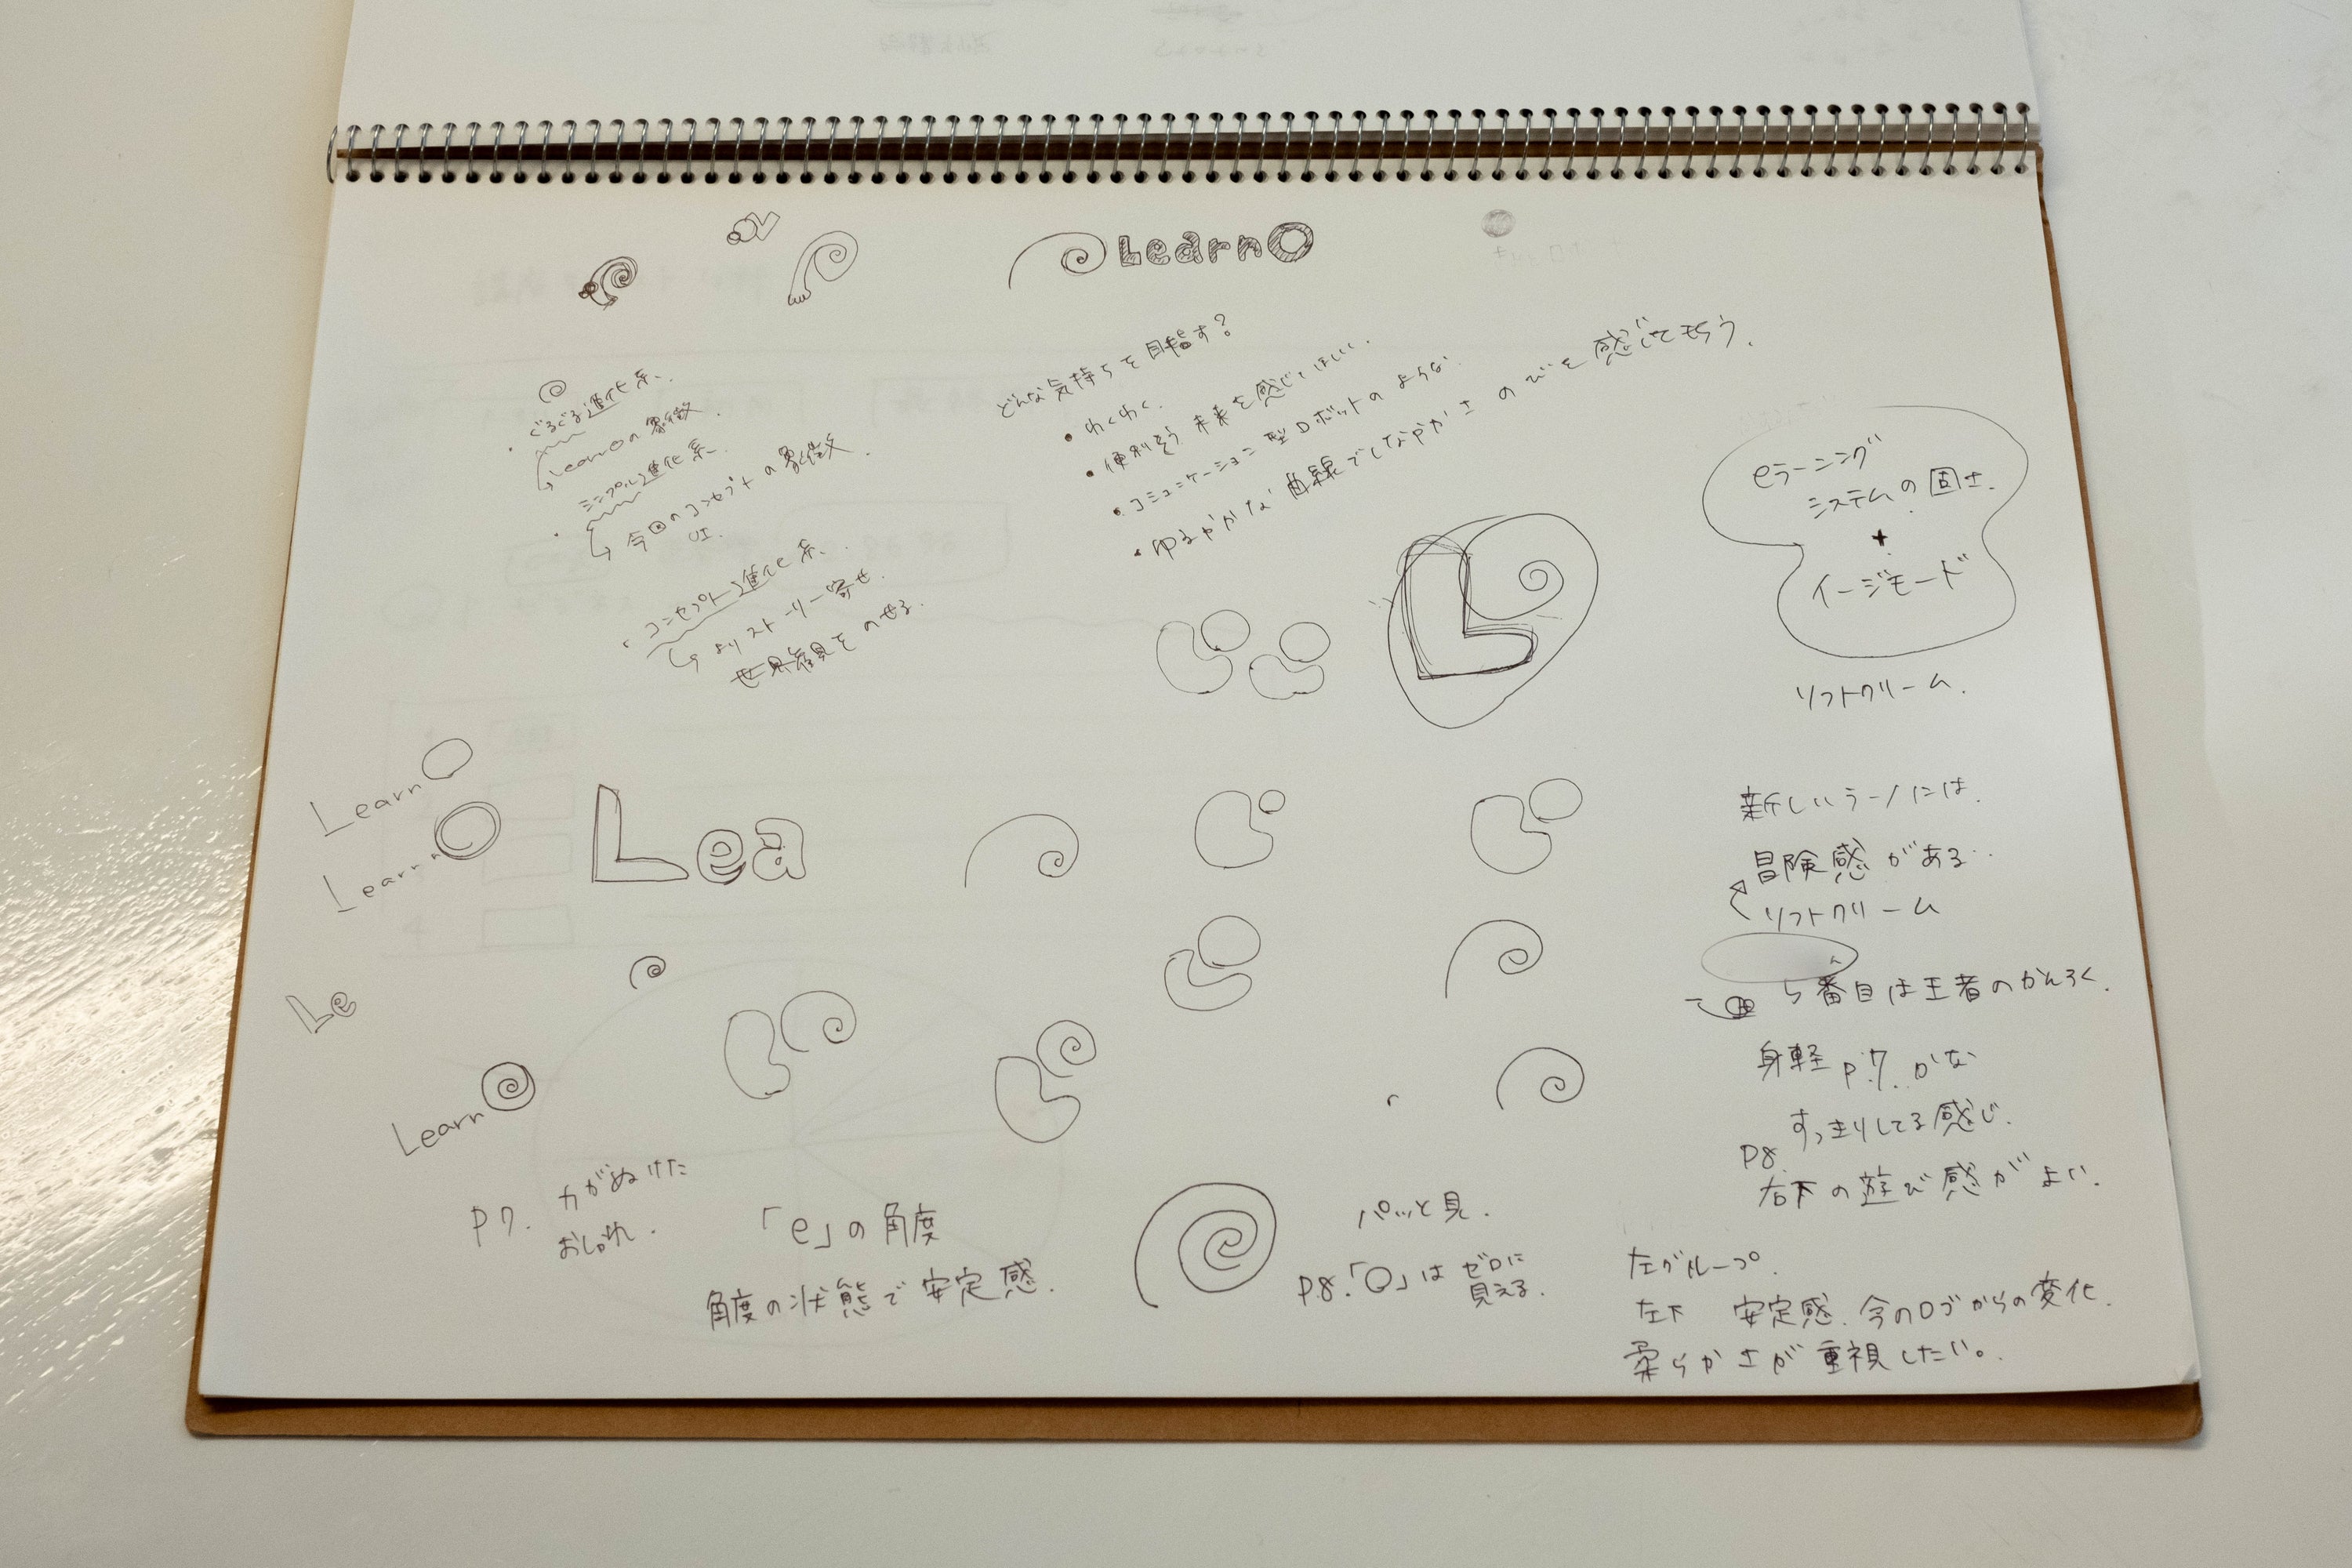 LearnO
どんな気持ちを目指す?
・わくわく.
・便利そう 未来を感じてほしい.
・コミュニケーション型ロボットのような.
・ゆるやかな曲線でしなやかさ のびを感じてもらう.
・ぐるぐる進化系.
LearnOの象徴.
・シンプル進化系.
今回のコンセプトの象徴.
UI.
・コンセプト進化系.
よりストーリー寄せ.
世界観をのせる.
eラーニング
システムの固さ.
+
イージーモード
ソフトクリーム.
L
LearnO
LearnO
Lea
Le
Learn
新しいラーノには.
冒険感がある..
ソフトクリーム
5番目は王者のかんろく.
身軽 P.7. かな
すっきりしてる感じ.
P8.
右下の遊び感がよい.
P7. 力がぬけた
おしゃれ.
「e」の角度
角度の状態で安定感.
パッと見.
P.8.「O」は ゼロに
見える.
左グループ.
左下 安定感. 今のロゴからの変化.
柔らかさが重視したい。